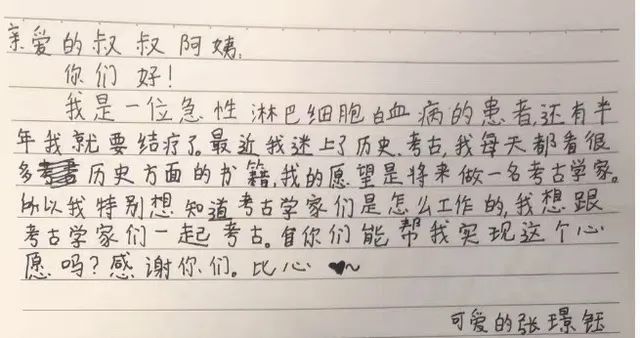 亲爱的叔叔阿姨:
你们好!
我是一位急性淋巴细胞白血病的患者,还有半
年我就要结疗了。最近我迷上了历史、考古,我每天都看很
多历史方面的书籍,我的愿望是将来做一名考古学家。
所以我特别想知道考古学家们是怎么工作的,我想跟
考古学家们一起考古。你们能帮我实现这个心
愿吗?感谢你们。比心
可爱的张璟钰